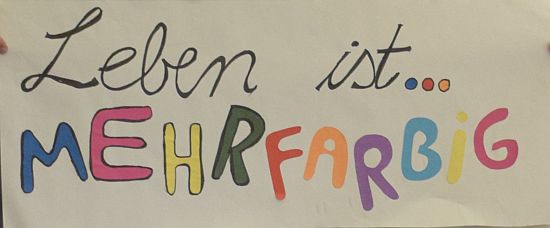 Leben ist...
MEHRFARBiG